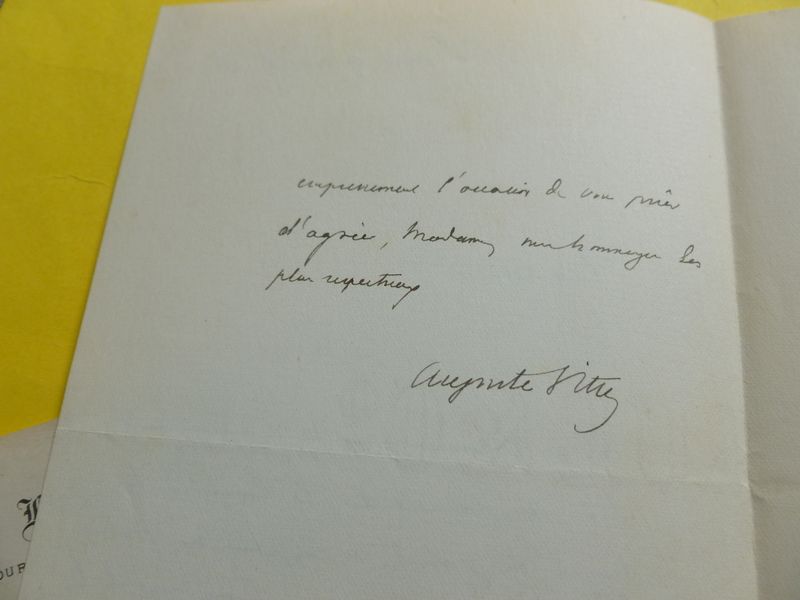 empressement l'occasion de vous prier
d'agréer, Madame, mes hommages les
plus respectueux
Auguste Vitu
OUR